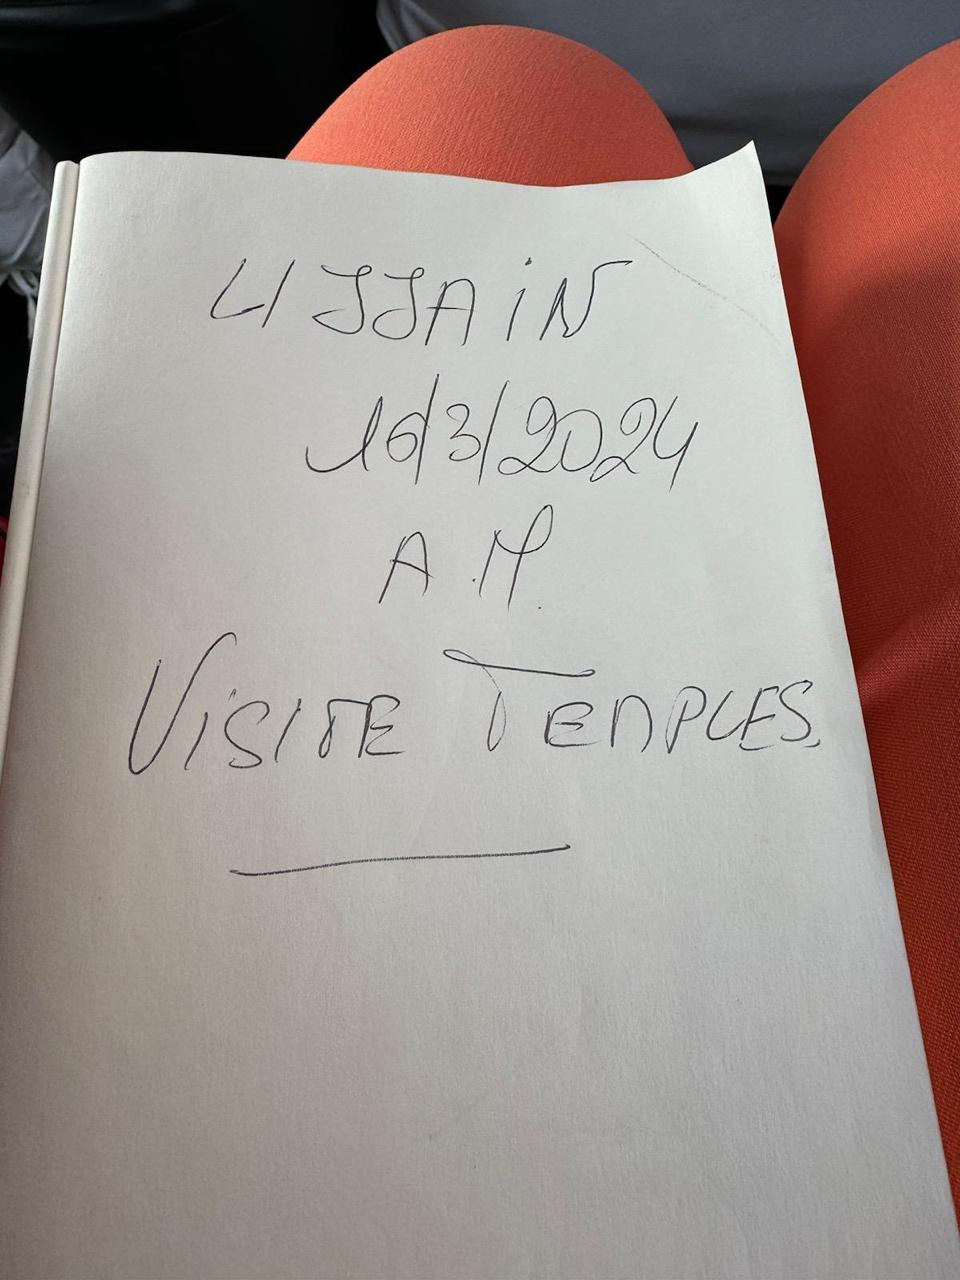 UJJAiN
16/3/2024
A.M.
ViSITE TEMPLES.